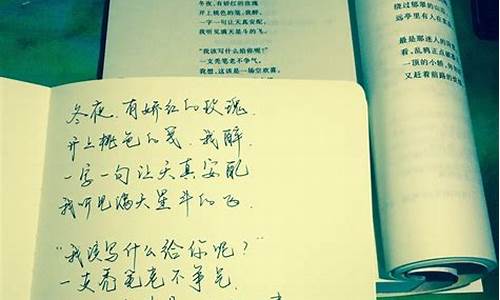 冬夜,有娇红的玫瑰
开上桃色的笺,我醉,
一字一句让天真安配
我听见满天星斗的飞。
“我该写什么给你呢?”
一支秃笔老不争气。
我想,这该是一场空欢喜,
绕过郁翠的山
远亭里有人在
最是那迷人的
看,乱鸦正点
一顶的小轿,
又赶着前路的
冬夜,有娇红的玫瑰
开上桃色的笺,我醉,
一字一句让天真安配
我听见满天星斗的飞.
“我该写什么给你呢?”
一支秃笔老不争气.